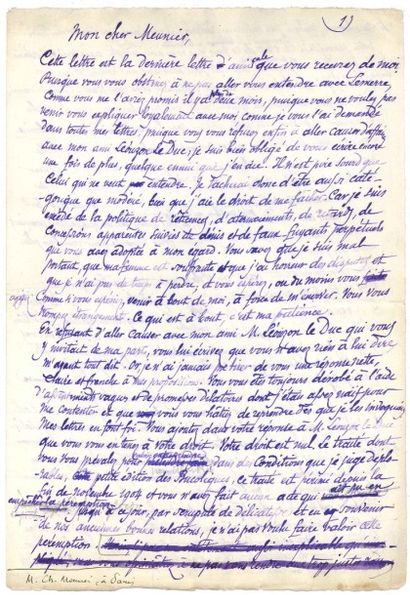 1)
Mon cher Meunier,
Cette lettre est la dernière lettre d'amicale que vous recevrez de moi.
Puisque vous vous obstinez à ne pas aller vous entendre avec Lemerre,
Comme vous me l'avez promis il y a deux mois, puisque vous ne voulez pas
venir vous expliquer loyalement avec moi, comme je vous l'ai demandé
dans toutes mes lettres, puisque vous refusez enfin d'aller causer
avec mon ami Léouzon le Duc, je suis bien obligé de vous écrire encore
une fois de plus, quelque ennui que j'en aie. Il n'est pire sourd que
Celui qui ne veut pas entendre. Je tâcherai donc d'être aussi caté-
gorique que modéré, bien que j'aie le droit de me fâcher. Car je suis
excédé de la politique de réticences, d'atermoiements, de retards, de
Concessions apparentes suivies de dénis et de faux fuyants perpétuels
que vous avez adoptée à mon égard. Vous savez que je suis mal
portant, que ma femme est souffrante et que j'ai horreur des disputes et
que je n'ai pas de temps à perdre, et vous espérez, ou du moins vous
Comme si vous espériez, venir à bout de moi, à force de m'énerver. Vous vous
trompez étrangement. Ce qui est à bout, c'est ma patience.
En refusant d'aller causer avec mon ami M. Léouzon le Duc qui vous
y invitait de ma part, vous lui écrivez que vous n'avez rien à lui dire
m'ayant tout dit. Or, je n'ai jamais pu tirer de vous une réponse nette,
claire et franche à mes propositions. Vous vous êtes toujours dérobé à l'aide
d'arguments vagues et de promesses dilatoires dont j'étais assez naïf pour
me contenter et que vous vous hâtez de reprendre dès que je les invoque.
Mes lettres en font foi. Vous ajoutez dans votre réponse à M. Léouzon le Duc
que vous vous en tenez à votre droit. Votre droit est nul. Le traité dont
vous vous prévalez pour dans des Conditions que je juge déplo-
-rables, petite édition des Bucoliques, ce traité est périmé depuis la
fin de novembre 1904 et vous n'avez fait aucun acte qui
empêcher la péremption
Jusqu'à ce jour, par scrupule de délicatesse et en souvenir
de nos anciennes bonnes relations, je n'ai pas voulu faire valoir cette
péremption.
M. Ch. Meunier, à Paris